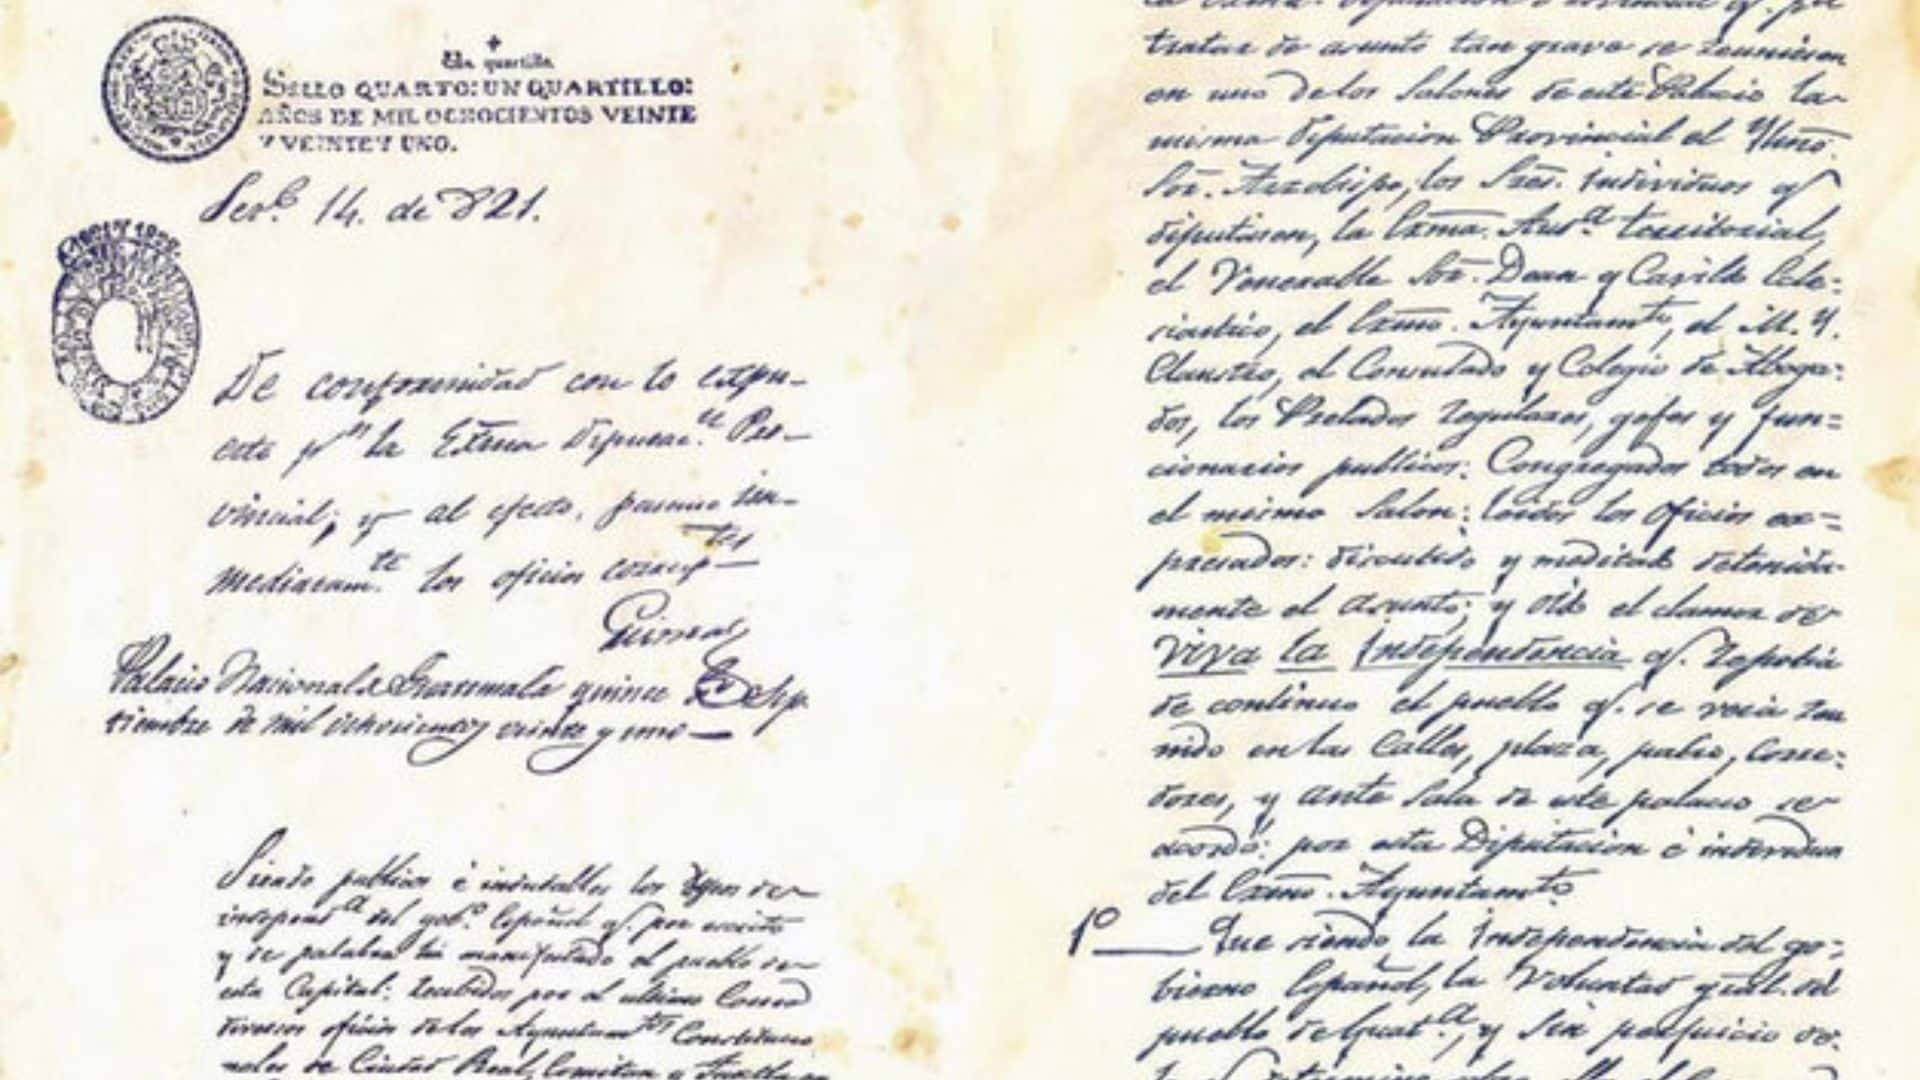 Un quartillo
SELLO QUARTO: UN QUARTILLO:
AÑOS DE MIL OCHOCIENTOS VEINTE
Y VEINTE Y UNO.
14. de 821.
De conformidad con lo expu-
esto pr. la Exma Diputacn. Pro-
vincial; y al efecto, in-
mediatamte. los oficios
Palacio Nacional de Guatemala quince de Sep
tiembre de mil ochocientos veinte y uno
Siendo publicos é indudables los deseos de
independa. del gobo. Español q. por escrito
y de palabra ha manifestado el pueblo de
esta Capital: recibidos por el ultimo Correo
diversos oficios de los Ayuntamtos Constitucio
nales de Ciudad Real, Comitan y Tuxtla
la Exma. Diputacion Provincial q. pa
tratar de asunto tan grave se reuniesen
en uno de los Salones de este Palacio la
misma Diputacion Provincial el Yllmo.
Sor. Arzobispo, los Sres. individuos q
diputasen, la Exma. Auda. territorial,
el Venerable Sor. Dean y Cavildo Ecle=
siastico, el Exmo. Ayuntamto, el M. Y.
Claustro, el Consulado y Colegio de Aboga=
dos, los Prelados regulares, gefes y fun=
cionarios publicos: Congregados todos en
el mismo Salon: leidos los oficios ex=
presados: discutido y meditado detenida-
mente el asunto; y oido el clamor de
Viva la Independencia q. repetia
de continuo el pueblo q. se veia reu
nido en las Calles, plaza, patio, Corre=
dores, y ante Sala de este palacio se
acordó: por esta Diputacion é individuos
del Exmo. Ayuntamto.
1º Que siendo la Independencia del go=
bierno Español, la Voluntad gral. del
pueblo de Guata., y Sin perjuicio de